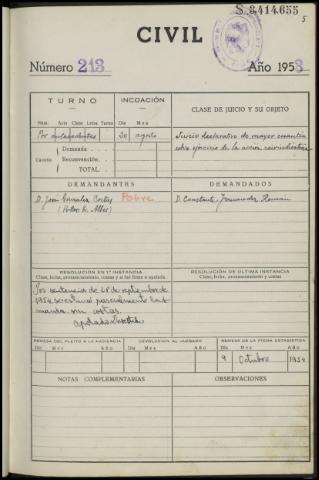 S.3.414.655
5
CIVIL
Número 213
Año 1953
TURNO
INCOACIÓN
CLASE DE JUICIO Y SU OBJETO
Núm. Auto Clase Letra Turno
Día Mes
Por antecedentes
20 agosto
Juicio declarativo de mayor cuantía
sobre ejercicio de la acción reivindicatoria
Cuantía
Demanda
Reconvención
TOTAL
DEMANDANTES
DEMANDADOS
D. José González Cortés Pobre
D. Constante Fernandez Román
RESOLUCIÓN EN 1ª INSTANCIA
Clase, fecha, pronunciamiento, costas y si fué firme o apelada
RESOLUCIÓN DE ÚLTIMA INSTANCIA
Clase, fecha, pronunciamiento y costas
Por sentencia de 28 de septiembre de
1954 se estimó parcialmente la de-
manda sin costas.
REMESA DEL PLEITO A LA AUDIENCIA
DEVOLUCIÓN AL JUZGADO
REMESA DE LA FICHA ESTADÍSTICA
Día Mes Año
Día Mes Año
Día Mes Año
9 Octubre 1954
NOTAS COMPLEMENTARIAS
OBSERVACIONES